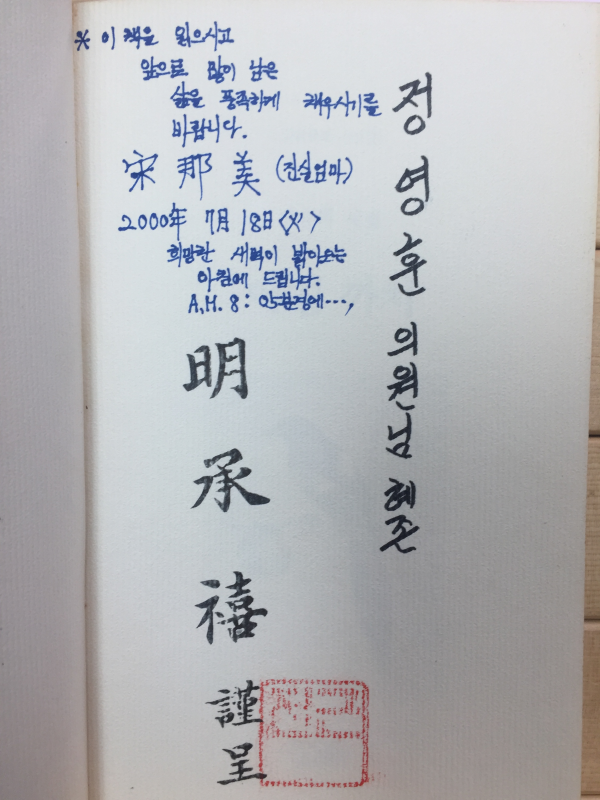 ※ 이 책을 읽으시고
앞으로 많이 남은
삶을 풍족하게 채우시기를
바랍니다.
宋那美 (진실엄마)
2000年 7月 18日〈火〉
희망찬 새벽이 밝아오는
아침에 드립니다.
A.M. 8:05분경에…,
정영훈 의원님 혜존
明承禧 謹呈